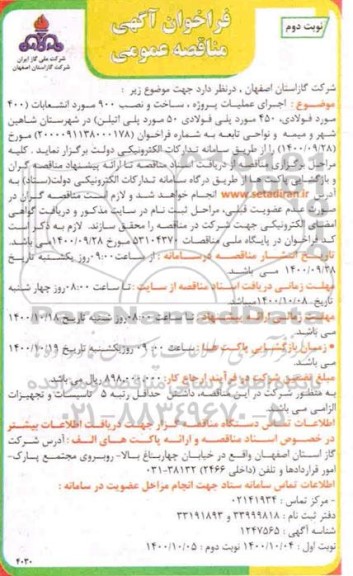 نوبت دوم
فراخوان آگهی
مناقصه عمومی
شرکت ملی گاز ایران
شرکت گاز استان اصفهان
شرکت گاز استان اصفهان ، درنظر دارد جهت موضوع زیر :
موضوع : اجرای عملیات پروژه ، ساخت و نصب ۹۰۰ مورد انشعابات (۴۰۰
مورد فولادی، ۴۵۰ مورد پلی فولادی ۵۰ مورد پلی اتیلن) در شهرستان شاهین
شهر و میمه و نواحی تابعه به شماره فراخوان (۲۰۰۰۰۹۱۱۳۸۰۰۰۱۷۸) مورخ
(۱۴۰۰/۰۹/۲۸) را از طریق سامانه تدارکات الکترونیکی دولت برگزار نماید . کلیه
مراحل مناقصه از دریافت اسناد مناقصه تا ارائه پیشنهاد مناقصه گران
و بازگشایی پاکت ها از طریق درگاه سامانه تدارکات الکترونیکی دولت(ستاد) به
آدرس www.setadiran.ir انجام خواهد شد و لازم است مناقصه گران در
صورت عدم عضویت قبلی، مراحل ثبت نام در سایت مذکور و دریافت گواهی
امضای الکترونیکی جهت شرکت در مناقصه را محقق سازند. لازم به ذکر است
کد فراخوان در پایگاه ملی مناقصات ۵۳۱۰۴۳۷ مورخ ۱۴۰۰/۰۹/۲۸ می باشد.
تاریخ انتشار مناقصه در سامانه : از ساعت ۰۹:۰۰ روز یکشنبه تاریخ
۱۴۰۰/۰۹/۲۸ می باشد.
مهلت زمانی دریافت اسناد مناقصه از سایت : تا ساعت ۰۸:۰۰ روز چهار شنبه
تاریخ ۱۴۰۰/۱۰/۰۸ میباشد.
مهلت زمانی ارائه پیشنهاد : تا ساعت ۰۸:۰۰ روز شنبه تاریخ ۱۴۰۰/۱۰/۱۸
می باشد.
زمان بازگشایی پاکت ها : ساعت ۰۹:۰۰ روز یکشنبه تاریخ ۱۴۰۰/۱۰/۱۹ می
باشد.
مبلغ تضمین شرکت در فرآیند ارجاع کار : ریال می باشد.
به منظور شرکت در این مناقصه، داشتن حداقل رتبه ۵ تاسیسات و تجهیزات
الزامی می باشد.
اطلاعات تماس دستگاه مناقصه گزار جهت دریافت اطلاعات بیشتر
در خصوص اسناد مناقصه و ارائه پاکت های الف : آدرس شرکت
گاز استان اصفهان واقع در خیابان چهارباغ بالا- روبروی مجتمع پارک-
امور قراردادها و تلفن (داخلی ۲۴۶۶) ۳۸۱۳۲-۰۳۱
اطلاعات تماس سامانه ستاد جهت انجام مراحل عضویت در سامانه :
- مرکز تماس : ۰۲۱۴۱۹۳۴
دفتر ثبت نام : ۳۳۹۹۹۸۱۸ و ۳۳۱۹۱۸۹۳
شناسه آگهی : ۱۲۴۷۵۶۵
نوبت اول : ۱۴۰۰/۱۰/۰۴ نوبت دوم : ۱۴۰۰/۱۰/۰۵
۴۰۳۰
۰۲۱-۸۸۳۴۹۶۷۰-۵